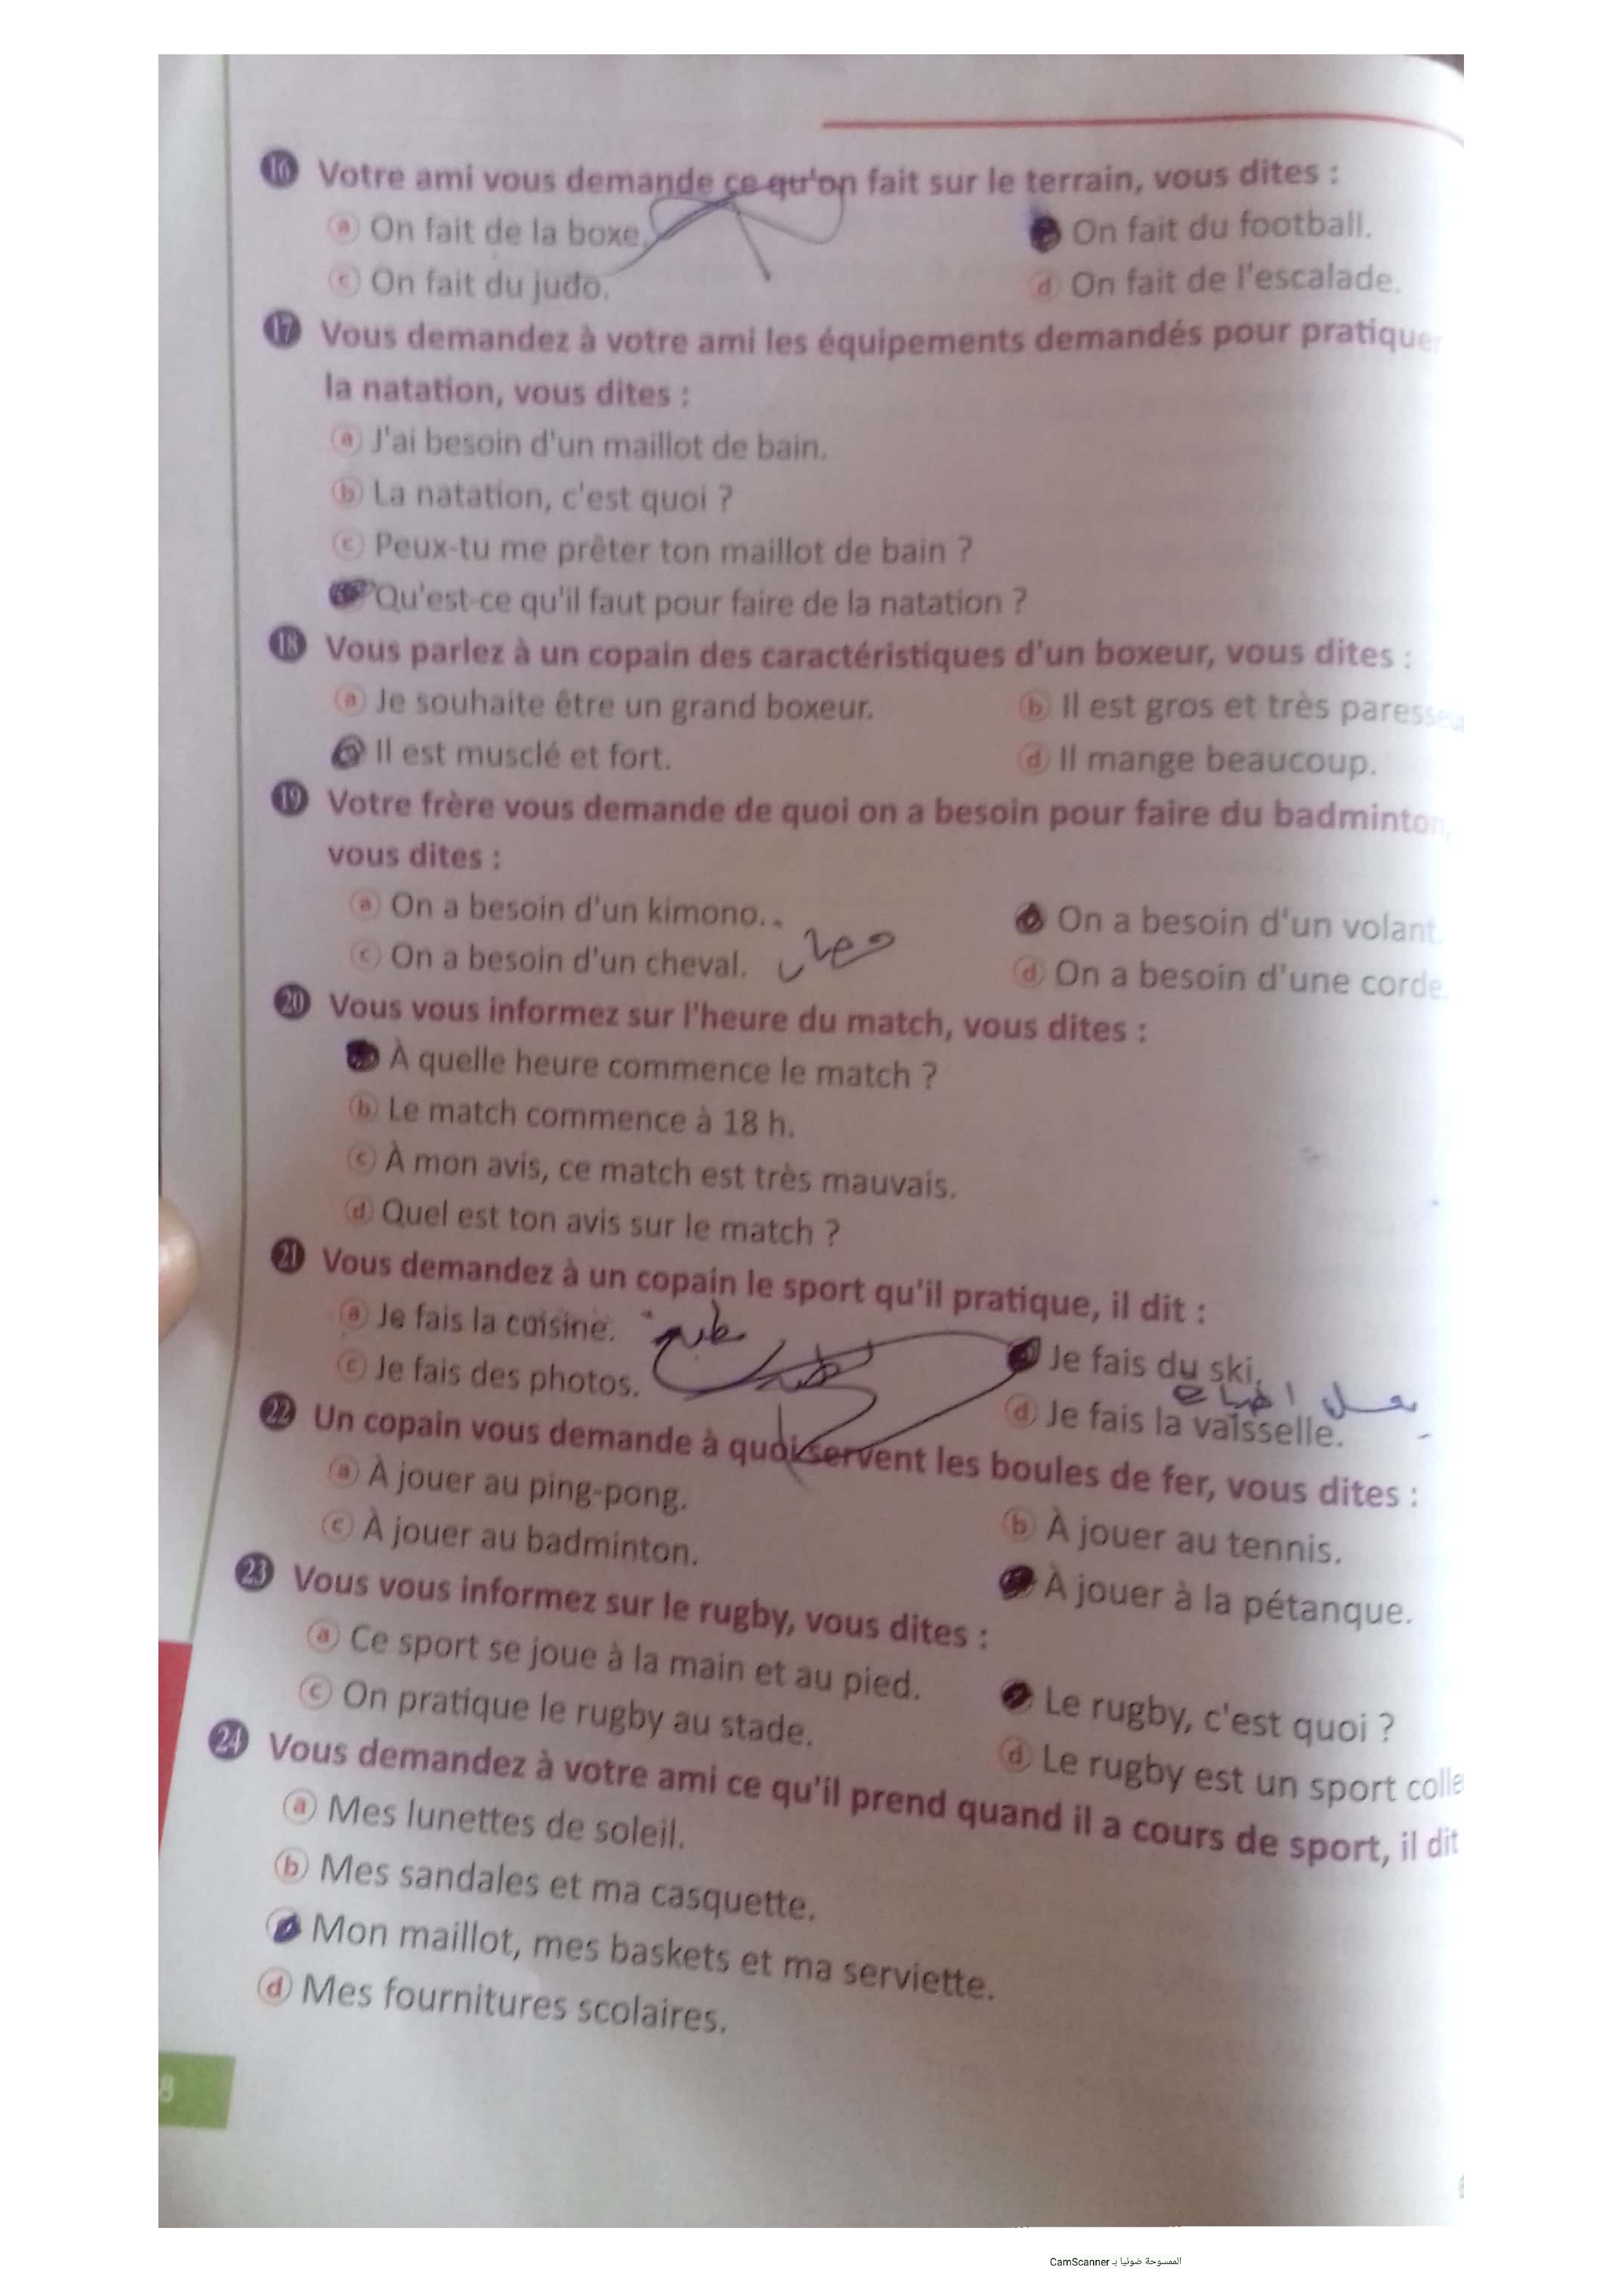 16 Votre ami vous demande ce qu'on fait sur le terrain, vous dites :
a On fait de la boxe. On fait du football.
c On fait du judo. d On fait de l'escalade.
17 Vous demandez à votre ami les équipements demandés pour pratiquer
la natation, vous dites :
a J'ai besoin d'un maillot de bain.
b La natation, c'est quoi ?
c Peux-tu me prêter ton maillot de bain ?
Qu'est-ce qu'il faut pour faire de la natation ?
18 Vous parlez à un copain des caractéristiques d'un boxeur, vous dites :
a Je souhaite être un grand boxeur. b Il est gros et très paresseu
Il est musclé et fort. d Il mange beaucoup.
19 Votre frère vous demande de quoi on a besoin pour faire du badminton,
vous dites :
a On a besoin d'un kimono. On a besoin d'un volant.
c On a besoin d'un cheval. حصان d On a besoin d'une corde.
20 Vous vous informez sur l'heure du match, vous dites :
À quelle heure commence le match ?
b Le match commence à 18 h.
c À mon avis, ce match est très mauvais.
d Quel est ton avis sur le match ?
21 Vous demandez à un copain le sport qu'il pratique, il dit :
a Je fais la cuisine. Je fais du ski.
c Je fais des photos. d Je fais la vaisselle.
22 Un copain vous demande à quoi servent les boules de fer, vous dites :
a À jouer au ping-pong. b À jouer au tennis.
c À jouer au badminton. À jouer à la pétanque.
23 Vous vous informez sur le rugby, vous dites :
a Ce sport se joue à la main et au pied. Le rugby, c'est quoi ?
c On pratique le rugby au stade. d Le rugby est un sport colle
24 Vous demandez à votre ami ce qu'il prend quand il a cours de sport, il dit
a Mes lunettes de soleil.
b Mes sandales et ma casquette.
Mon maillot, mes baskets et ma serviette.
d Mes fournitures scolaires.
8
الممسوحة ضوئيا بـ CamScanner